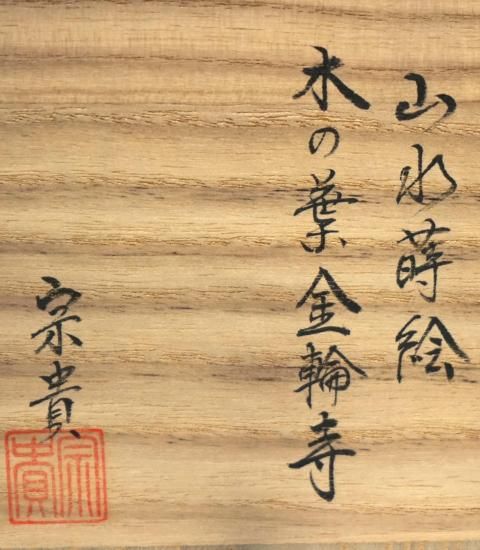 山水蒔絵
木の葉金輪寺
宗貴
宗貴